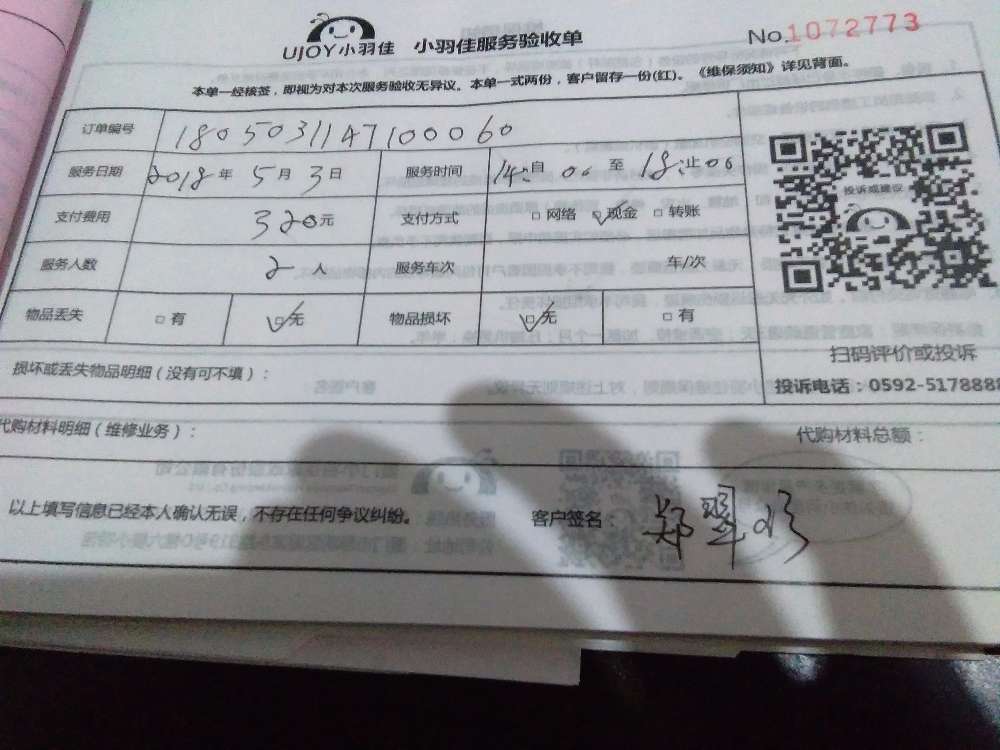 UJOY小羽佳 小羽佳服务验收单 No.1072773
本单一经核签，即视为对本次服务验收无异议。本单一式两份，客户留存一份(红)。《维保须知》详见背面。
订单编号 180503114710006o
服务日期 2018年5月3日 服务时间 14:自00至18:止00
支付费用 320元 支付方式 □网络 ☑现金 □转账
服务人数 2人 服务车次 车/次
物品丢失 □有 ☑无 物品损坏 ☑无 □有
投诉或建议
扫码评价或投诉
投诉电话：0592-5178888
损坏或丢失物品明细（没有可不填）：
代购材料明细（维修业务）： 代购材料总额：
以上填写信息已经本人确认无误，不存在任何争议纠纷。 客户签名：郑翠